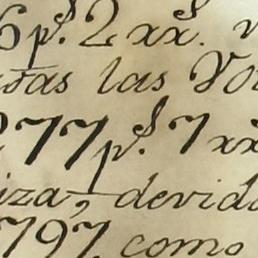 6 ps. 2 xxs.
las Vo
277 ps. 7 xx
iza, devid
797. como